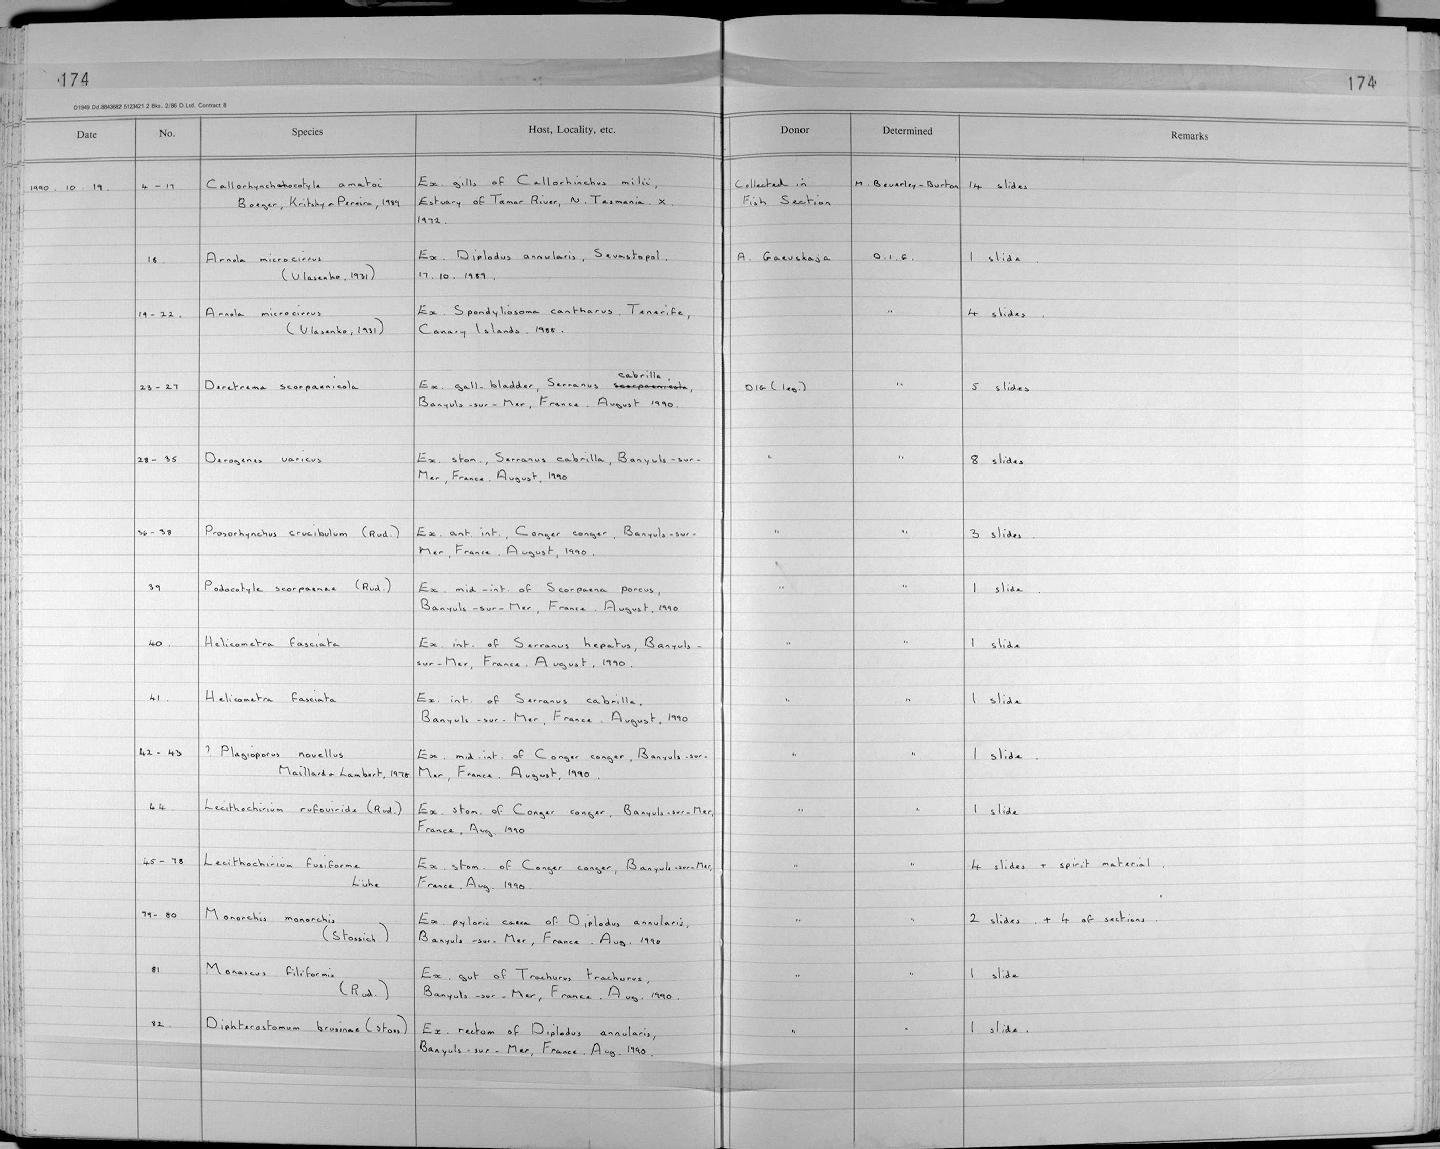 174
174
D1949 Dd.8843682 5123421 2 Bks. 2/86 D.Ltd. Contract 8
Date No. Species Host, Locality, etc. Donor Determined Remarks
1990. 10. 19. 4-17 Callorhynchocotyle amatoi Ex. gills of Callorhinchus milii, Collected in M. Beverley-Burton 14 slides
Boeger, Kritsky & Pereira, 1989 Estuary of Tamar River, N. Tasmania. x. Fish Section
1972.
18 Arnola microcirrus Ex. Diplodus annularis, Sevastopol. A. Gaevskaja D.I.G. 1 slide.
(Vlasenko, 1931) 17.10.1989.
19-22. Arnola microcirrus Ex. Spondyliosoma cantharus. Tenerife, " 4 slides.
(Vlasenko, 1931) Canary Islands. 1988.
cabrilla,
23-27 Deretrema scorpaenicola Ex. gall-bladder, Serranus scorpaenicola, DIG (leg.) " 5 slides
Banyuls-sur-Mer, France. August 1990.
28-35 Derogenes varicus Ex. stom., Serranus cabrilla, Banyuls-sur- " " 8 slides
Mer, France. August, 1990
36-38 Prosorhynchus crucibulum (Rud.) Ex. ant. int., Conger conger, Banyuls-sur- " " 3 slides.
Mer, France. August, 1990.
39 Podocotyle scorpaenae (Rud.) Ex. mid-int. of Scorpaena porcus, " " 1 slide.
Banyuls-sur-Mer, France. August, 1990
40. Helicometra fasciata Ex. int. of Serranus hepatus, Banyuls- " " 1 slide
sur-Mer, France. August, 1990.
41. Helicometra fasciata Ex. int. of Serranus cabrilla, " " 1 slide
Banyuls-sur-Mer, France. August, 1990
42-43 ? Plagioporus novellus Ex. mid.int. of Conger conger, Banyuls-sur- " " 1 slide.
Maillard & Lambert, 1978 Mer, France. August, 1990.
44 Lecithochirium rufoviride (Rud.) Ex stom. of Conger conger, Banyuls-sur-Mer, " " 1 slide
France, Aug. 1990
45-78 Lecithochirium fusiforme Ex stom. of Conger conger, Banyuls-sur-Mer, " " 4 slides + spirit material.
Lühe France. Aug. 1990.
79-80 Monorchis monorchis Ex. pyloric caeca of Diplodus annularis, " " 2 slides. + 4 of sections.
(Stossich) Banyuls-sur-Mer, France. Aug. 1990
81 Monascus filiformis Ex. gut of Trachurus trachurus, " " 1 slide
(Rud.) Banyuls-sur-Mer, France. Aug. 1990.
82. Diphterostomum brusinae (Stoss) Ex. rectum of Diplodus annularis, " " 1 slide.
Banyuls-sur-Mer, France. Aug. 1990.